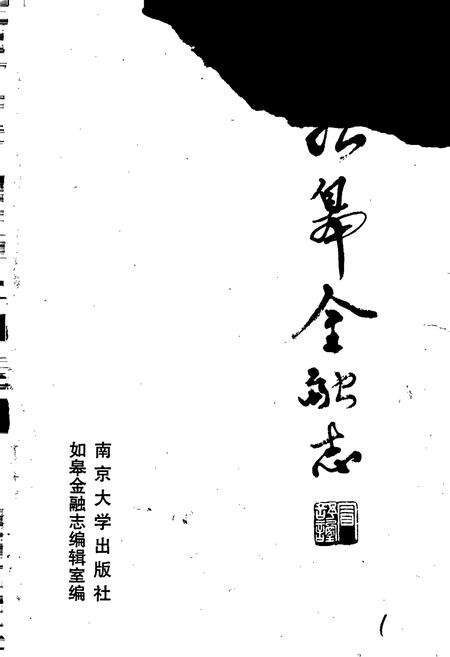 如皋金融志
南京大学出版社
如皋金融志编辑室编